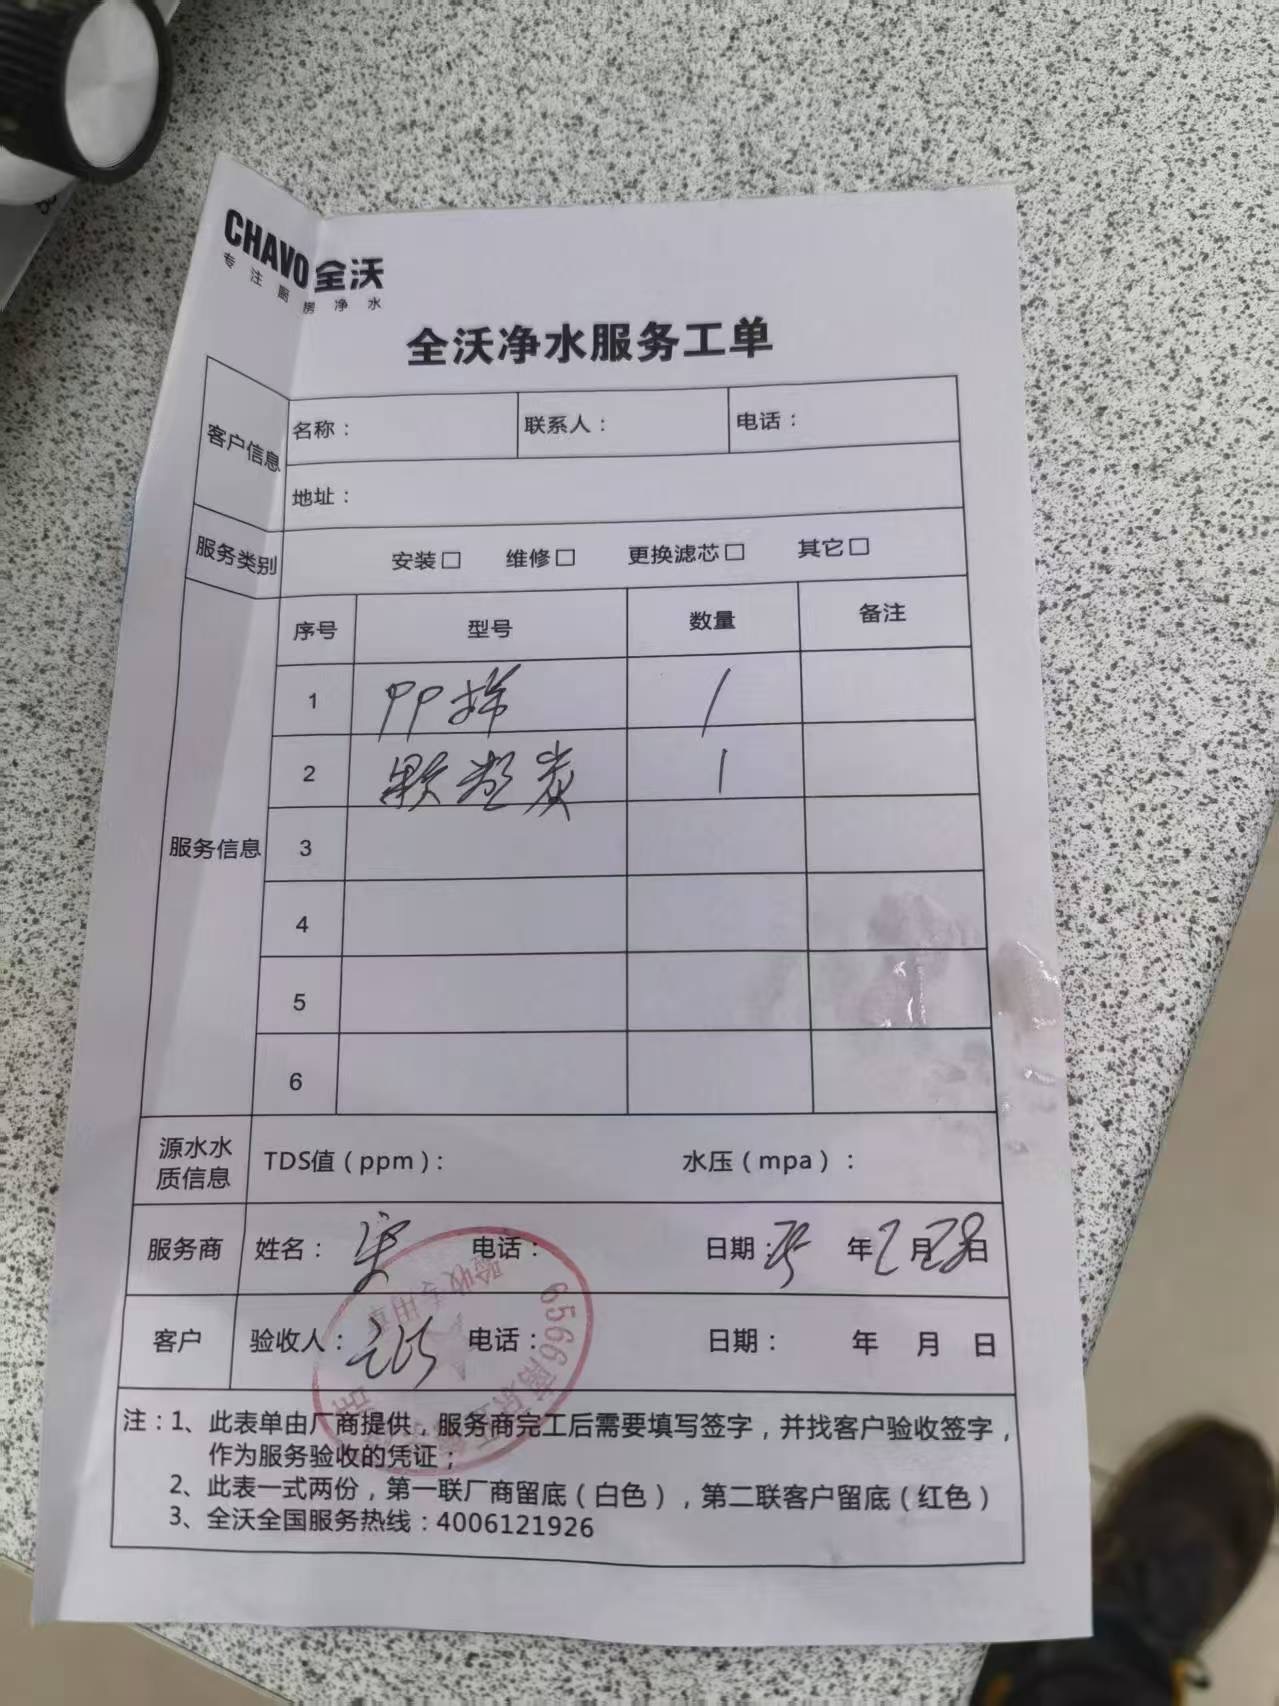 CHAVO 全沃
专注厨房净水
全沃净水服务工单
客户信息
名称：
联系人：
电话：
地址：
服务类别
安装□ 维修□ 更换滤芯□ 其它□
服务信息
序号 型号 数量 备注
1 PP棉 1
2 颗粒炭 1
3
4
5
6
源水水质信息
TDS值（ppm）：
水压（mpa）：
服务商 姓名： 电话： 日期：25 年 2 月 28 日
客户 验收人： 电话： 日期： 年 月 日
6566南京
验收专用章
注：1、此表单由厂商提供，服务商完工后需要填写签字，并找客户验收签字，
作为服务验收的凭证；
2、此表一式两份，第一联厂商留底（白色），第二联客户留底（红色）
3、全沃全国服务热线：4006121926